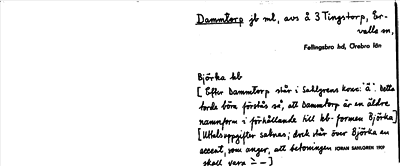 Dammtorp jb ml, avs å 3 Tingstorp, Er-
valla sn,
Fellingsbro hd, Örebro län
Björka bb
[Efter Dammtorp står i Sahlgrens konc: "ä". Detta
torde böra förstås så, att Dammtorp är en äldre
namnform i förhållande till bb-formen Björka]
[Uttalsuppgifter saknas; dock står över Björka en
accent, som anger, att betoningen JÖRAN SAHLGREN 1909
skall vara ́ – ]